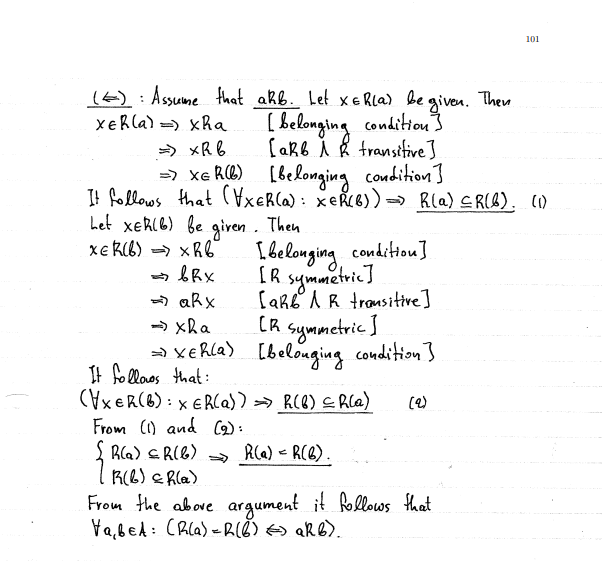 101
(⇐) : Assume that aRb. Let x∈R(a) be given. Then
x∈R(a) ⇒ xRa [belonging condition]
⇒ xRb [aRb ∧ R transitive]
⇒ x∈R(b) [belonging condition]
It follows that (∀x∈R(a) : x∈R(b)) ⇒ R(a) ⊆ R(b). (1)
Let x∈R(b) be given. Then
x∈R(b) ⇒ xRb [belonging condition]
⇒ bRx [R symmetric]
⇒ aRx [aRb ∧ R transitive]
⇒ xRa [R symmetric]
⇒ x∈R(a) [belonging condition]
It follows that:
(∀x∈R(b) : x∈R(a)) ⇒ R(b) ⊆ R(a) (2)
From (1) and (2):
{ R(a) ⊆ R(b) ⇒ R(a) = R(b).
R(b) ⊆ R(a)
From the above argument it follows that
∀a,b∈A : (R(a) = R(b) ⇔ aRb).